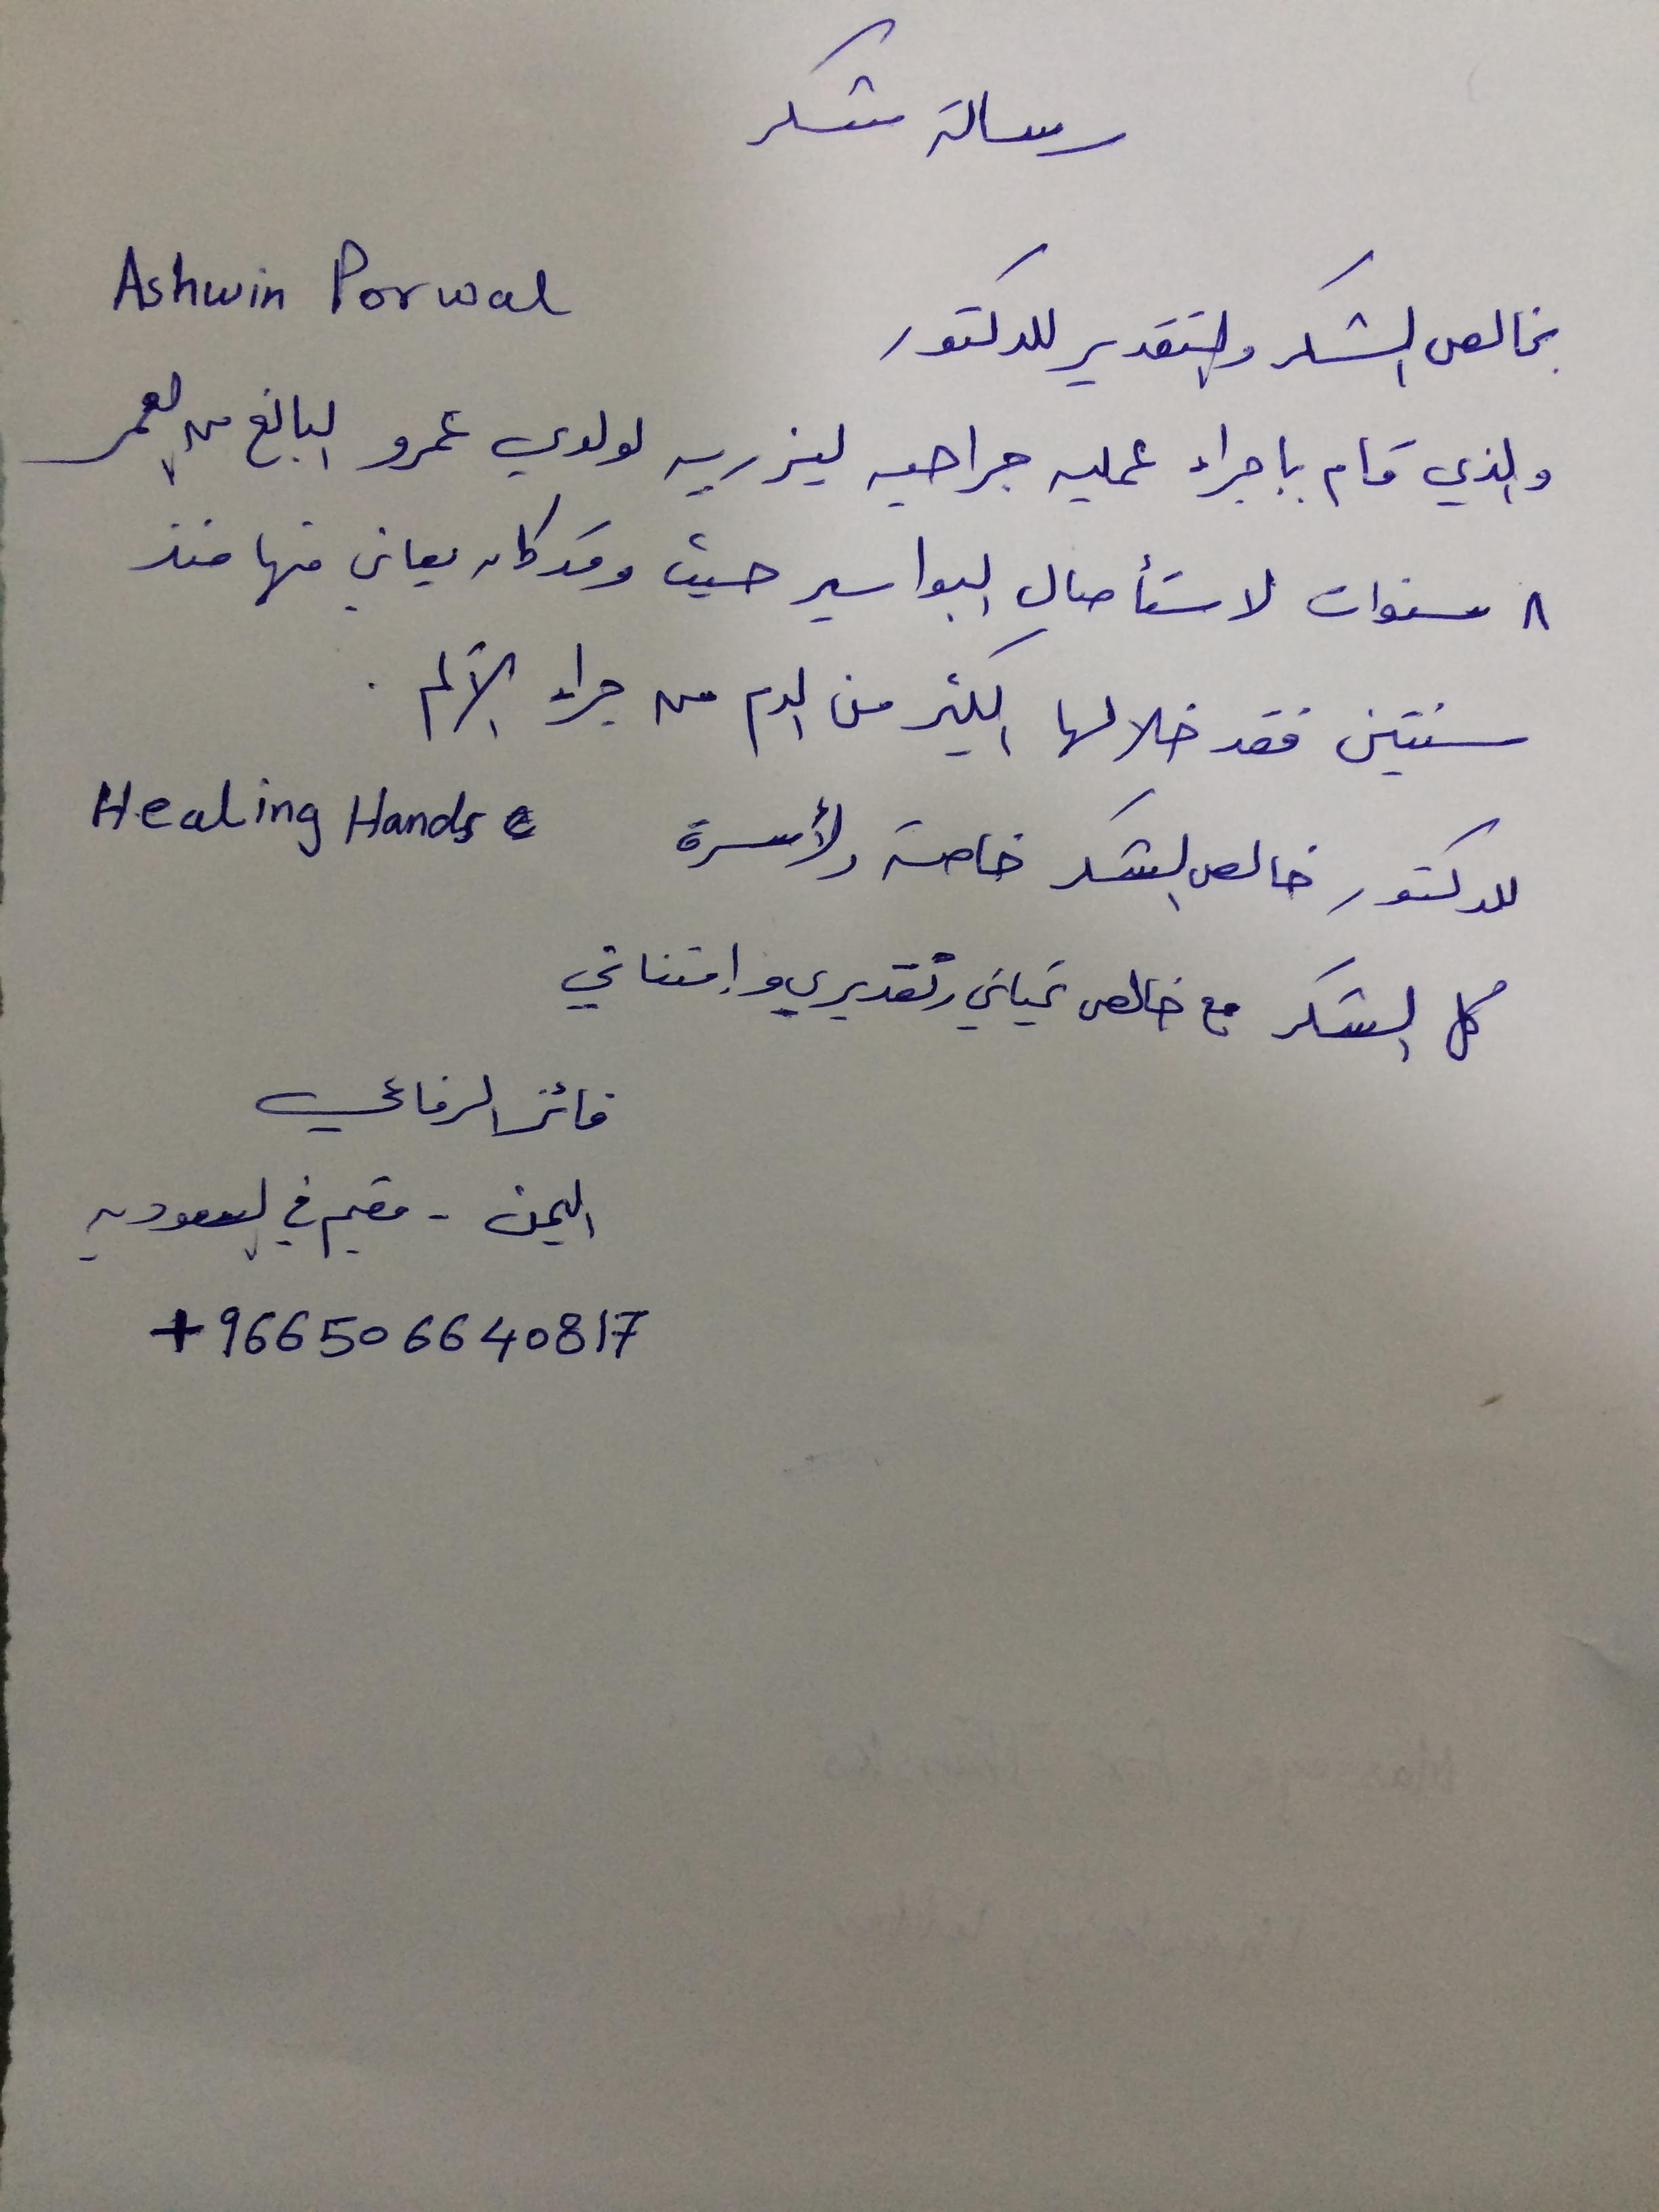 رسالة شكر
بخالص الشكر والتقدير للدكتور Ashwin Porwal
والذي قام باجراء عمليه جراحيه ليزريه لولدي عمرو البالغ من العمر
٨ سنوات لاستأصال البواسير حيث وقد كان يعاني منها منذ
سنتين فقد خلالها الكثير من الدم من جراء الألم .
للدكتور خالص الشكر خاصة ولأسرة Healing Hands
كل الشكر مع خالص تحياتي وتقديري وإمتناني
فائز الرفاعي
اليمن - مقيم في السعوديه
+966506640817